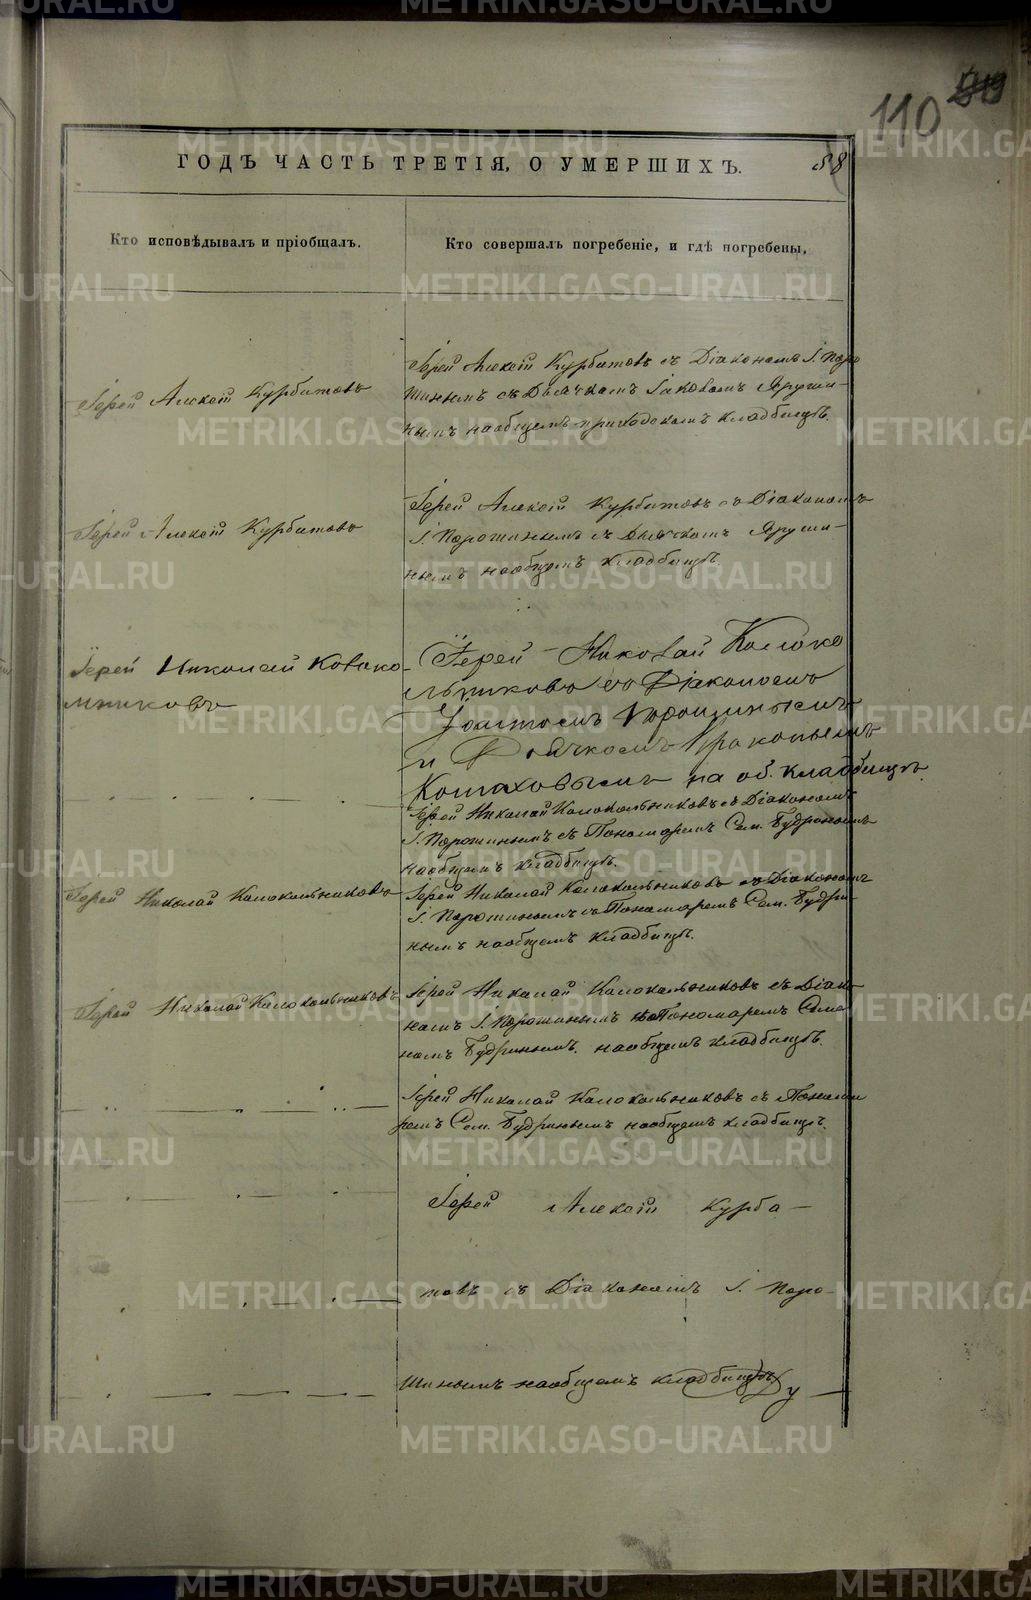 110
88
ГОДЪ ЧАСТЬ ТРЕТІЯ, О УМЕРШИХЪ.
Кто исповѣдывалъ и пріобщалъ.
Кто совершалъ погребеніе, и гдѣ погребены.
Іерей Алексій Курбатовъ
Іерей Алексій Курбатовъ съ Діакономъ І. Поро
шинымъ съ Дьячкомъ Іаковомъ Яруши-
нымъ на общемъ приходскомъ кладбищѣ.
Іерей Алексій Курбатовъ
Іерей Алексій Курбатовъ съ Діакономъ
І. Порошинымъ съ Дьячкомъ Яруши-
нымъ на общемъ кладбищѣ.
Іерей Николай Колоко-
льниковъ
Іерей Николай Колоко
льниковъ со Діакономъ
Порошинымъ
и Дьячкомъ Прокопьемъ
на об. кладбищѣ.
Іерей Николай Колокольниковъ съ Діакономъ
І. Порошинымъ съ Пономаремъ Сем. Будринымъ
на общемъ кладбищѣ.
Іерей Николай Колокольниковъ
Іерей Николай Колокольниковъ съ Діакономъ
І. Порошинымъ съ Пономаремъ Сем. Будри-
нымъ на общемъ кладбищѣ.
Іерей Николай Колокольниковъ
Іерей Николай Колокольниковъ съ Діако
номъ І. Порошинымъ Пономаремъ Симе
номъ Будринымъ. на общемъ кладбищѣ.
Іерей Николай Колокольниковъ съ Понома
ремъ Сем. Будринымъ на общемъ кладбищѣ.
Іерей Алексій Курба-
товъ съ Діакономъ І. Поро-
шинымъ на общемъ кладбищѣ
METRIKI.GASO-URAL.RU